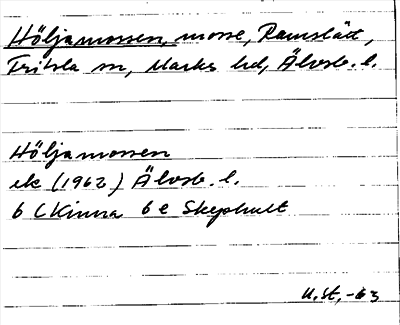 Höljamossen, mosse, Ramslätt,
Fritsla sn, Marks hd, Älvsb. l.
Höljamossen
ek (1962) Älvsb. l.
6 C Kinna 6 e Skephult
U.St. -63